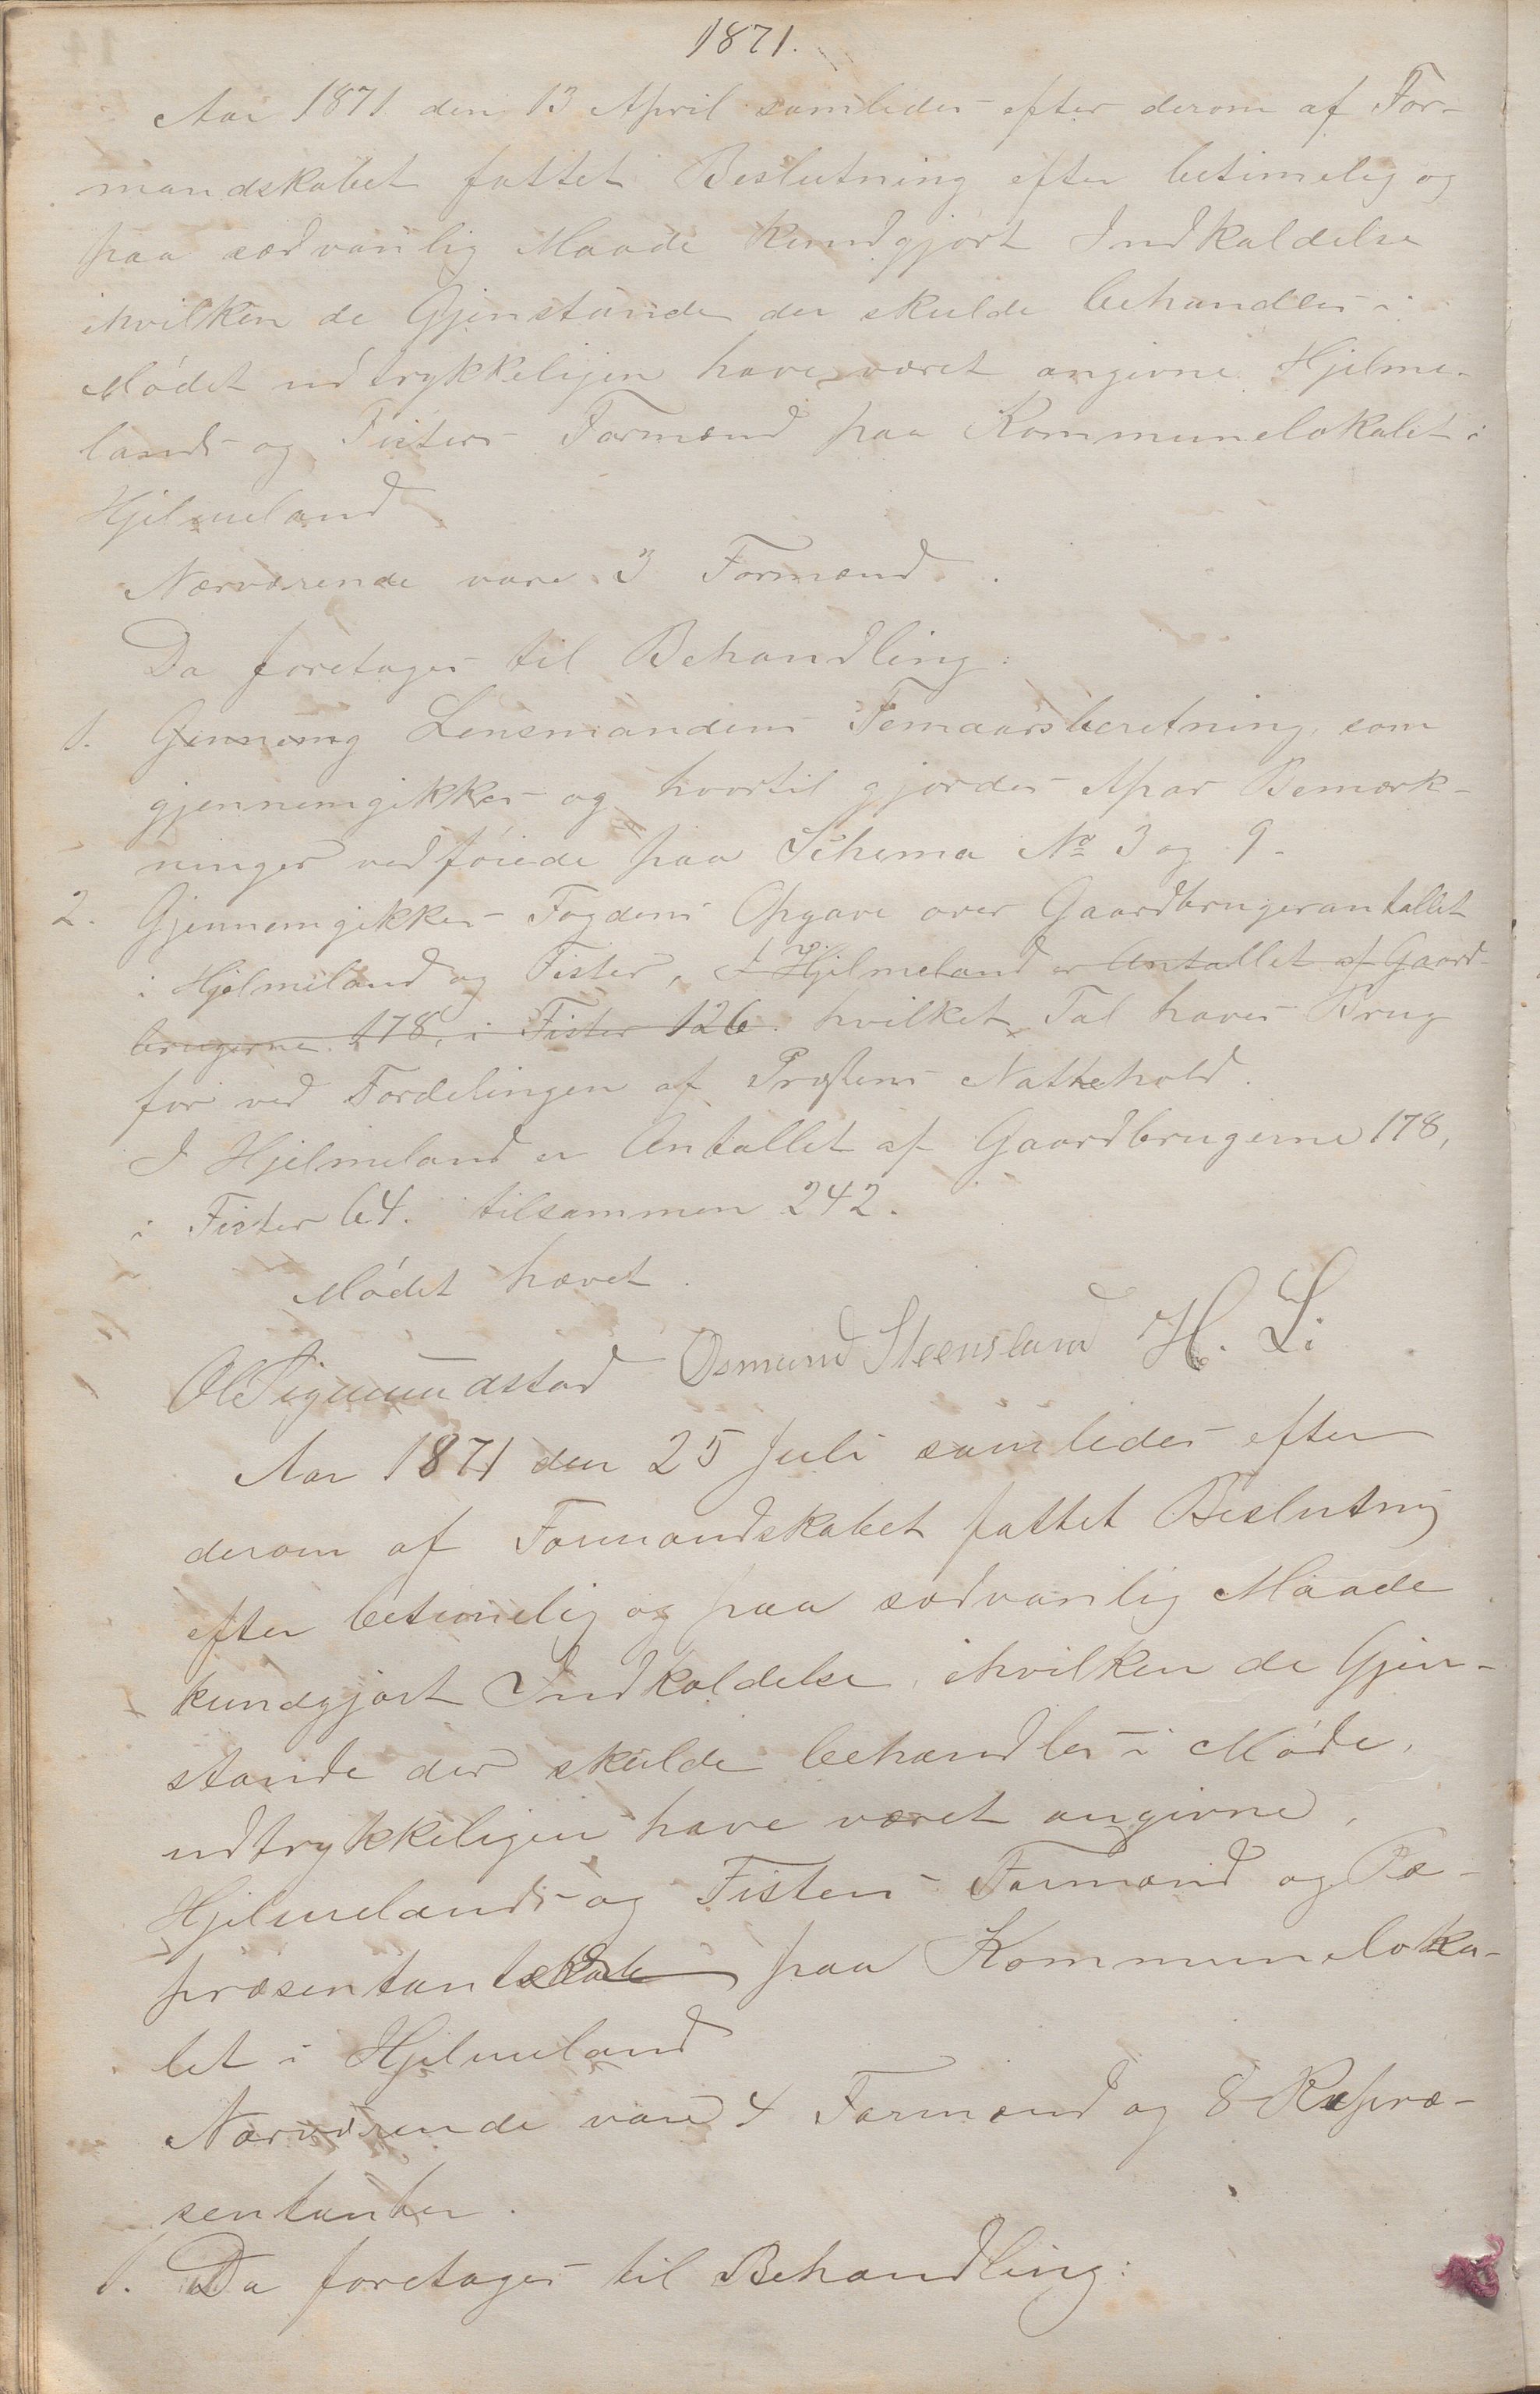 1871.
Aar 1871 den 13 April samledes efter derom af For-
mandskabet fattet Beslutning efter betimelig og
paa sædvanlig Maade kundgjort Indkaldelse
ihvilken de Gjenstande der skulde behandles i
Mødet udtrykkeligen have været angivne Hjelme-
lands og Fisters Formænd paa Kommunelokalet i
Hjelmeland
Nærværende vare 3 Formænd.
Da foretages til Behandling:
1. Gjennemg Lensmandens Femaarsberetning, som
gjennemgikkes og hvortil gjordes Bemærk-
ninger vedføiede paa Schema No 3 og 9.
2. Gjennemgikkes Fogdens Opgave over Gaardbrugerantallet
i Hjelmeland og Fister, I Hjelmeland er Antallet af Gaard-
brugerne 178, i Fister 126. hvilket Tal haves Brug
for ved Fordelingen af Præstens Nattehold.
I Hjelmeland er Antallet af Gaardbrugerne 178,
i Fister 64. tilsammen 242.
Mødet hævet.
Ol Sigmundstad Osmund Steensland H. Li
Aar 1871 den 25 Juli samledes efter
derom af Formandskabet fattet Beslutning
efter betimelig og paa sædvanlig Maade
kundgjort Indkaldelse, ihvilken de Gjen-
stande der skulde behandles i Møde,
udtrykkeligen have været angivne,
Hjelmelands og Fisters Formænd og Re-
præsentantskab paa Kommuneloka-
let i Hjelmeland
Nærværende vare 4 Formænd og 8 Repræ-
sentanter.
1. Da foretages til Behandling: